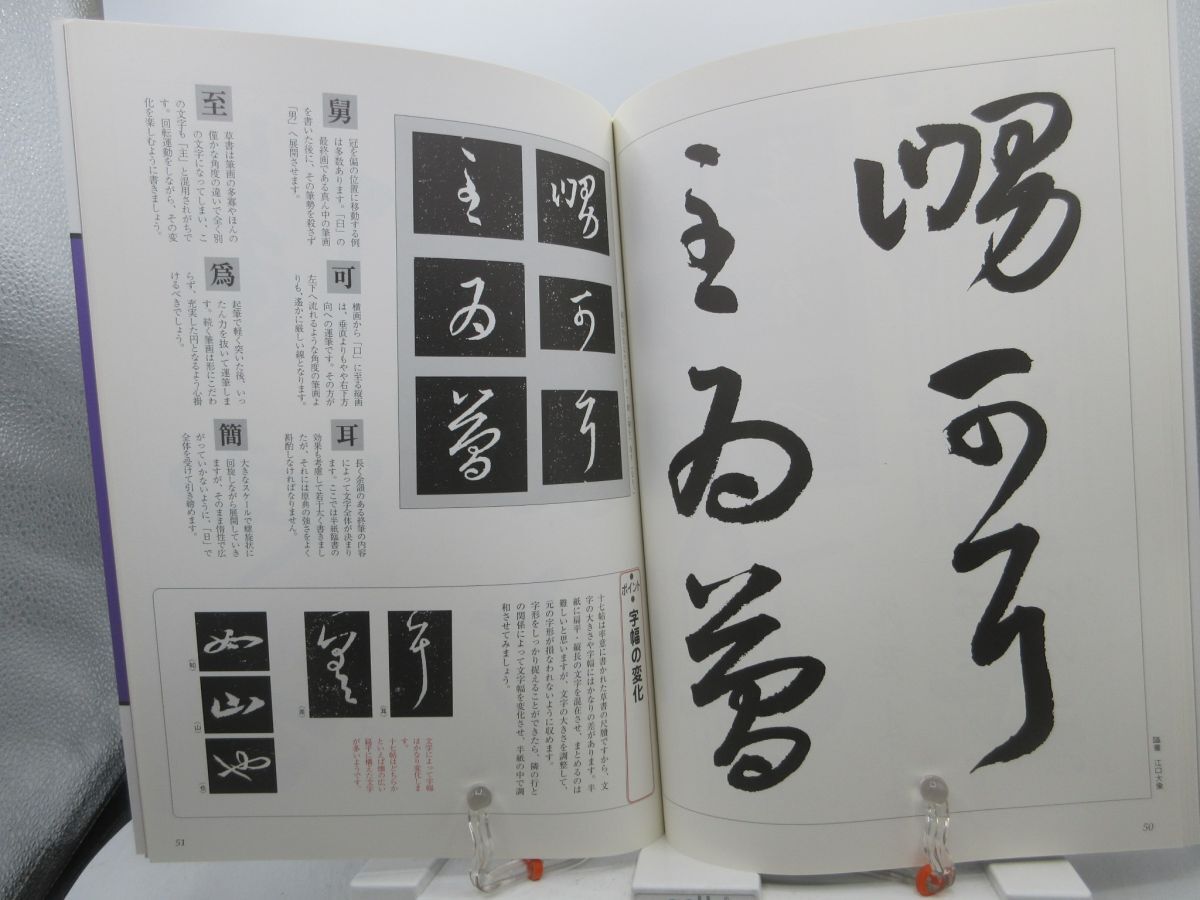 舅可耳
至為簡
臨書 江口大象
50
舅
冠を偏の位置に移動する例
は多数あります。「臼」の
最終画である真ん中の筆画
を書いた後に、その筆勢を殺さず
「男」へ展開させます。
可
横画から「口」に至る縦画
は、垂直よりもやや右下方
向への運筆です。その方が
左下へ流れるような角度の筆画よ
りも、遙かに厳しい線となります。
耳
長く余韻のある終筆の内容
によって文字全体が決まり
ます。ここでは半紙臨書の
効果も考慮して若干太く書きまし
たが、それには原典の強さをよく
斟酌しなければなりません。
至
草書は筆画の多寡やほんの
僅かな角度の違いで全く別
の文字になってしまい、こ
の文字も「主」と混用されがちで
す。回転運動をしながら、その変
化を楽しむように書きましょう。
爲
起筆で軽く突いた後、いっ
たん力を抜いて運筆しま
す。続く筆画は形にこだわ
らず、充実した円となるよう心掛
けるべきでしょう。
簡
大きなスケールで螺旋状に
回旋しながら展開していき
ますが、そのまま惰性で広
がっていかないように、「日」で
全体を受けて引き締めます。
ポイント
字幅の変化
十七帖は率意に書かれた草書の尺牘ですから、文
字の大きさや字幅にはかなりの差があります。半
紙に扁平・縦長の文字を混在させ、まとめるのは
難しいと思いますが、文字の大きさを調整して、
元の字形が損なわれないように収めます。
字形をしっかり捉えることができたら、隣の行と
の関係によって文字幅を変化させ、半紙の中で調
和させてみましょう。
(耳)
(知)
(山)
(也)
文字によって字幅
はかなり変化しま
す。
十七帖はどちらか
といえば横の広い
扁平に構えた文字
が多いようです。
51